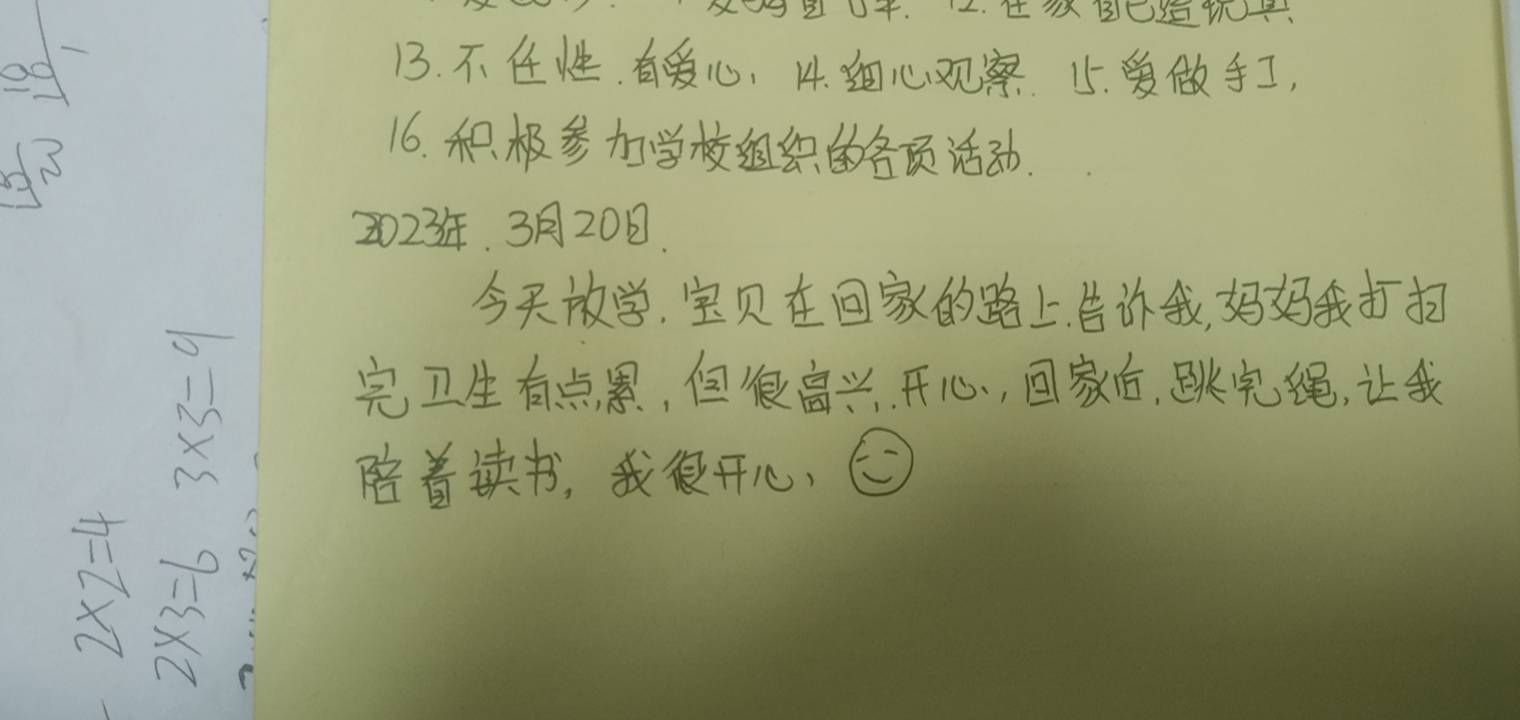 12.在家自己整玩具
13.不任性.有爱心, 14.细心观察. 15.爱做手工,
16.积极参加学校组织的各项活动.
2023年.3月20日.
今天放学.宝贝在回家的路上.告诉我,妈妈我打扫
完卫生有点累,但很高兴,.开心.,回家后,跳完绳,让我
陪着读书,我很开心,
2×2=4
2×3=6 3×3=9